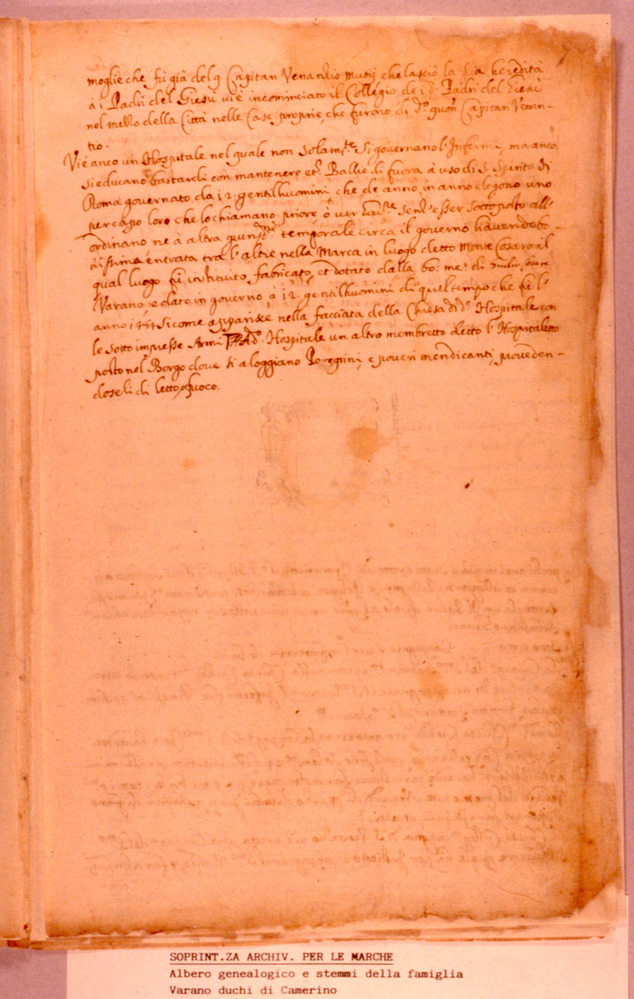 moglie che fù già del q. Capitan Venantio Mutij che lasciò la sua heredità
à i Padri del Giesù vi è incominciato il Collegio de i d. Padri del Giesù
nel mezzo della Città nelle Case proprie che furono di d.º quon. Capitan Venan-
tio.
Vi è anco un Hospitale nel quale non solam.te si governano l'Infermi, ma anco
si educano bastardi con mantenere Balie di fuora à uso di S. Spirito di
Roma governato da 12. gentilhuomini che de anno in anno elegono uno
per capo loro che lo chiamano priore ò ver esser sottoposto all'
ordinario ne à altra temporale circa il governo havendo bo-
nissima entrata tra l'altre nella Marca in luogo detto Monte al
qual luogo fù instituito, fabricato, et dotato dalla bo: me: di Giulio
Varano, e dato in governo à 12. gentilhuomini di quel tempo che fù l'
anno si come apparisce nella facciata della Chiesa di d.º Hospitale con
le sotto impresse Armi Hà d.º Hospitale un altro membretto detto l'Hospitaletto
posto nel Borgo dove si aloggiano Peregrini, e poveri mendicanti, proveden-
doseli di letto, e fuoco.
SOPRINT.ZA ARCHIV. PER LE MARCHE
Albero genealogico e stemmi della famiglia
Varano duchi di Camerino